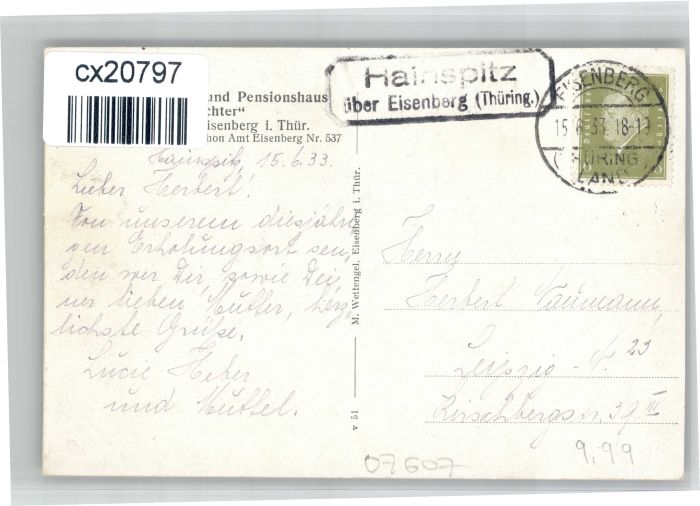 cx20797
und Pensionshaus
chter“
isenberg i. Thür.
hon Amt Eisenberg Nr. 537
Hainspitz
über Eisenberg (Thüring.)
EISENBERG
15.6.33. 18-19
(THÜRING.
LAND)
Hainspitz, 15.6.33.
Lieber Herbert!
Von unserem diesjähri
gen Erholungsort sen,
den wir Dir, sowie Dei,
ner lieben Mutter, herz,
lichste Grüße.
Lucie Heber
und Muttel.
M. Wettengel, Eisenberg i. Thür.
v 51
Herrn
Herbert Naumann,
Leipzig - N. 23
Kirschbergstr. 39 III
07607
9,99